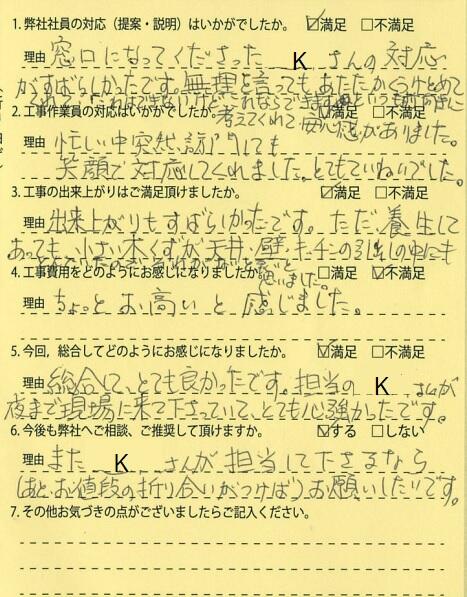 1. 弊社社員の対応（提案・説明）はいかがでしたか。 ☑満足 □不満足
理由 窓口になってくださった K さんの対応
がすばらしかったです。無理を言ってもあたたかくうけとめて
くれて、これはできないけど、これならできますよ
考えてくれて安心感がありました。
2. 工事作業員の対応はいかがでしたか。 ☑満足 □不満足
理由 忙しい中突然、訪問しても
笑顔で対応してくれました。とてもていねいでした。
3. 工事の出来上がりはご満足頂けましたか。 ☑満足 □不満足
理由 出来上がりもすばらしかったです。ただ、養生して
あっても、小さい木くずが天井、壁、キッチンの引出しの中にも
思いました。
4. 工事費用をどのようにお感じになりましたか。 □満足 ☑不満足
理由 ちょっとお高いと感じました。
5. 今回，総合してどのようにお感じになりましたか。 ☑満足 □不満足
理由 総合して、とても良かったです。担当の K さんが
夜まで現場に来て下さっていて、とても心強かったです。
6. 今後も弊社へご相談、ご推奨して頂けますか。 ☑する □しない
理由 また K さんが担当して下さるなら
（あと、お値段の折り合いがつけば）、お願いしたいです。
7. その他お気づきの点がございましたらご記入ください。